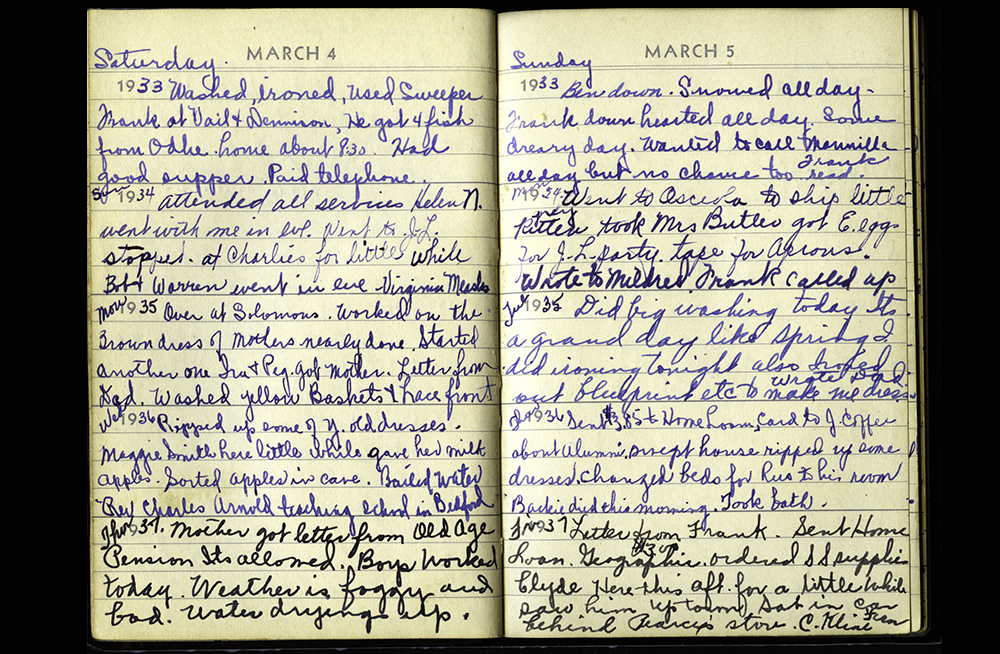 MARCH 4
Saturday.
1933 Washed, Ironed, used Sweeper
Frank at Vail & Dennison, He got 4 fish
from Odhe home about 8:30. Had
good supper. Paid telephone.
Sun 1934 attended all services Helen N.
went with me in eve. Went to J.L.
stopped at Charlies for little while
Bob & Warren went in eve Virginia Measles
Mon 1935 Over at Solomons. Worked on the
Brown dress of Mothers nearly done. Started
another one Ira & Peg. got Mother. Letter from
Dad. Washed yellow Baskets & lace front
Wed 1936 Ripped up some of y. old dresses.
Maggie Smith here little while gave her milk
apples. Sorted apples in cave. Bailed Water
Rev Charles Arnold teaching school in Bedford
Thur 1937. Mother got letter from Old Age
Pension Its allowed. Boys Worked
today. Weather is foggy and
bad. Water drying up.
MARCH 5
Sunday
1933 Ben down. Snowed all day-
Frank down hearted all day. Some
dreary day. Wanted to call
all day but no chance too Frank read.
Mon 1934 Went to Osceola to ship little
kitten took Mrs Butler got E. eggs
For J-L. party. tape for Aprons.
Wrote to Mildred Frank called up
1935 Did big washing today Its
a grand day like spring I
did ironing tonight also Ironed
out blueprint etc to make me dress
wrote Dad.
1936 Sent $3.85 to Home Loan, Card to J. Coffer
about Alumni. swept house ripped up some
dresses. Changed beds for Russ to his room
this morning. Took bath.
Fri 1937 Letter from Frank. Sent Home
Loan. Geographic. ordered SS supplies
Clyde Here this aft. for a little while
saw him up town) Sat in car
behind Pearcy's store. C. Kline